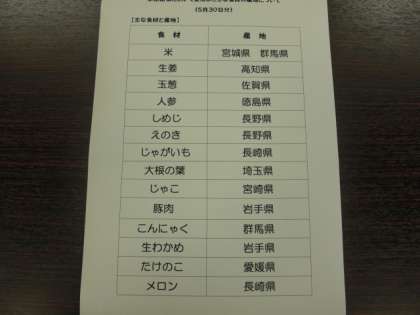 (5月30日分)
【主な食材と産地】
食 材 産 地
米 宮城県 群馬県
生姜 高知県
玉葱 佐賀県
人参 徳島県
しめじ 長野県
えのき 長野県
じゃがいも 長崎県
大根の葉 埼玉県
じゃこ 宮崎県
豚肉 岩手県
こんにゃく 群馬県
生わかめ 岩手県
たけのこ 愛媛県
メロン 長崎県